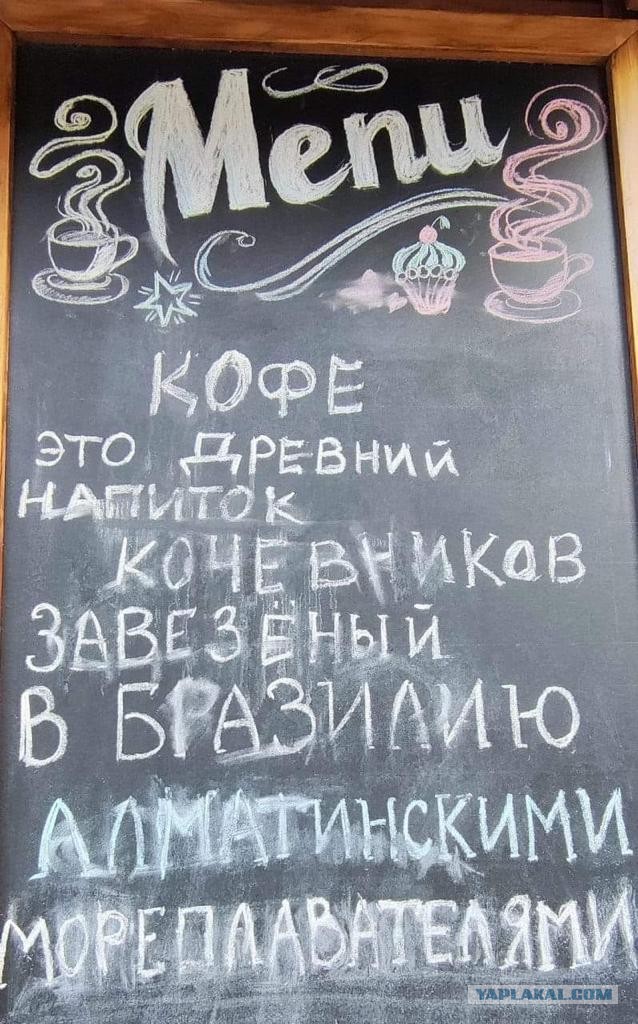 Menu
КОФЕ
ЭТО ДРЕВНИЙ
НАПИТОК
КОЧЕВНИКОВ
ЗАВЕЗЁНЫЙ
В БРАЗИЛИЮ
АЛМАТИНСКИМИ
МОРЕПЛАВАТЕЛЯМИ
YAPLAKAL.COM